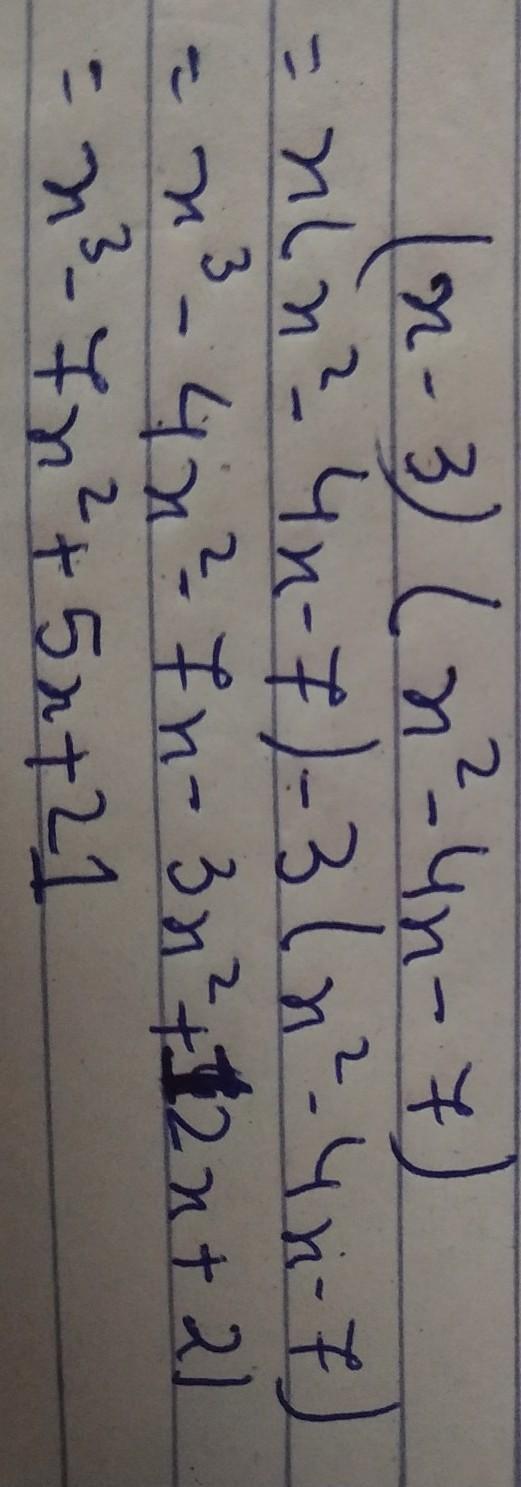 (x - 3) (x² - 4x - 7)
= x(x² - 4x - 7) - 3(x² - 4x - 7)
= x³ - 4x² - 7x - 3x² + 12x + 21
= x³ - 7x² + 5x + 21